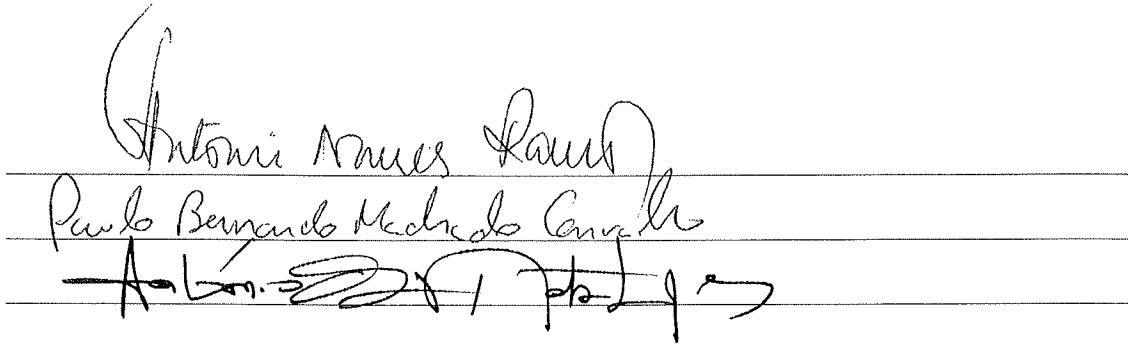 António Nunes Ramos
Paulo Bernardo Machado Carvalho
António